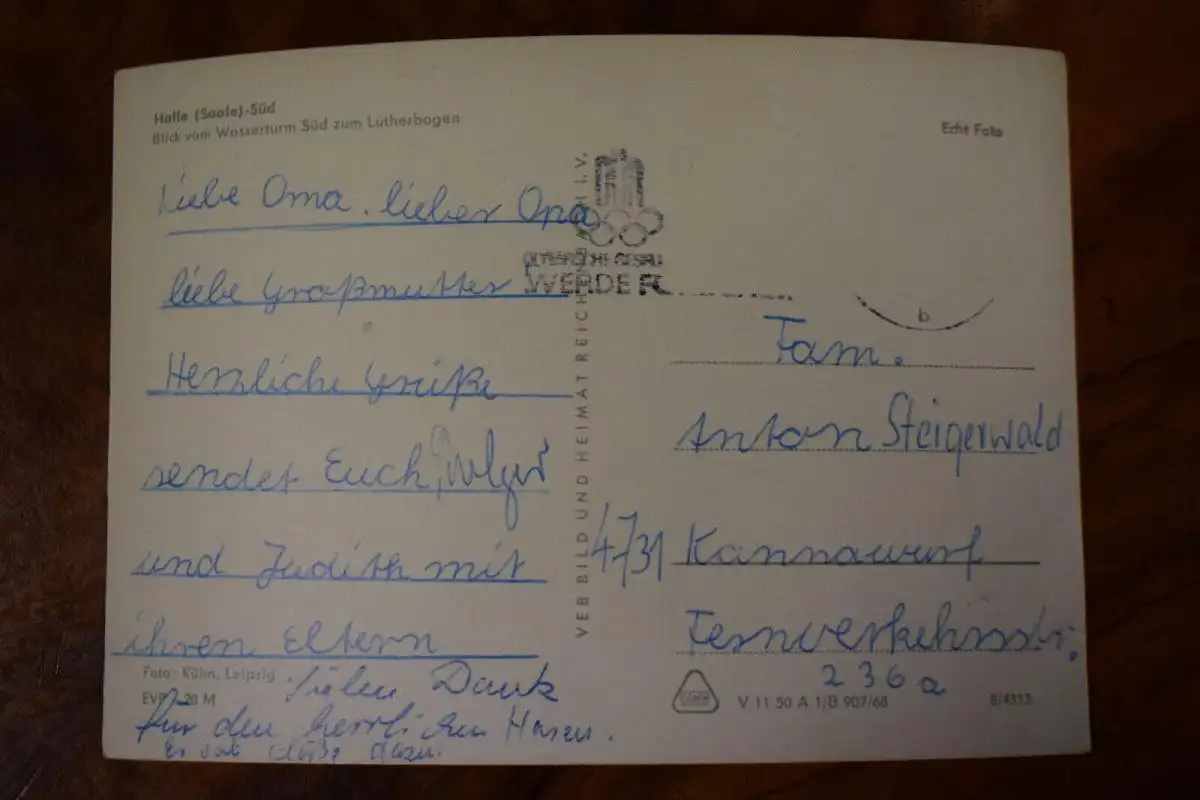 Halle (Saale)-Süd
Blick vom Wasserturm Süd zum Lutherbogen
Echt Foto
Liebe Oma, lieber Opa
liebe Großmutter!
Herzliche Grüße
sendet Euch,
und Judith mit
ihren Eltern
Vielen Dank
für den herrlichen Hasen.
Foto: Kühn, Leipzig
EVP 20 M
VEB BILD UND HEIMAT REICHENBACH I. V.
OLYMPISCHE
WERDE
b
Fam.
Anton Steigerwald
4731 Kannawurf
Fernverkehrsstr.
236a
V 11 50 A 1/B 907/68
8/4313